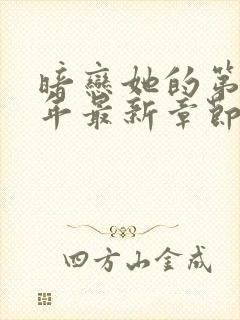 暗戀她的第
年最新章節
四方山金成